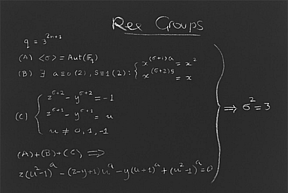 Ree Groups
q = 3^{2n+1}
(A) <σ> = Aut(F_q)
(B) ∃ a≡0(2), s≡1(2): { x^{(σ+1)a} = x^2
x^{(σ+2)s} = x
(C) { z^{σ+2} - y^{σ+2} = -1
z^{σ+1} - y^{σ+1} = u
u ≠ 0, 1, -1
⇒ σ^2 = 3
(A)+(B)+(C) ⇒
z(u^2-1)^a - (z-y+1)u^a - y(u+1)^a + (u^2-1)^a = 0